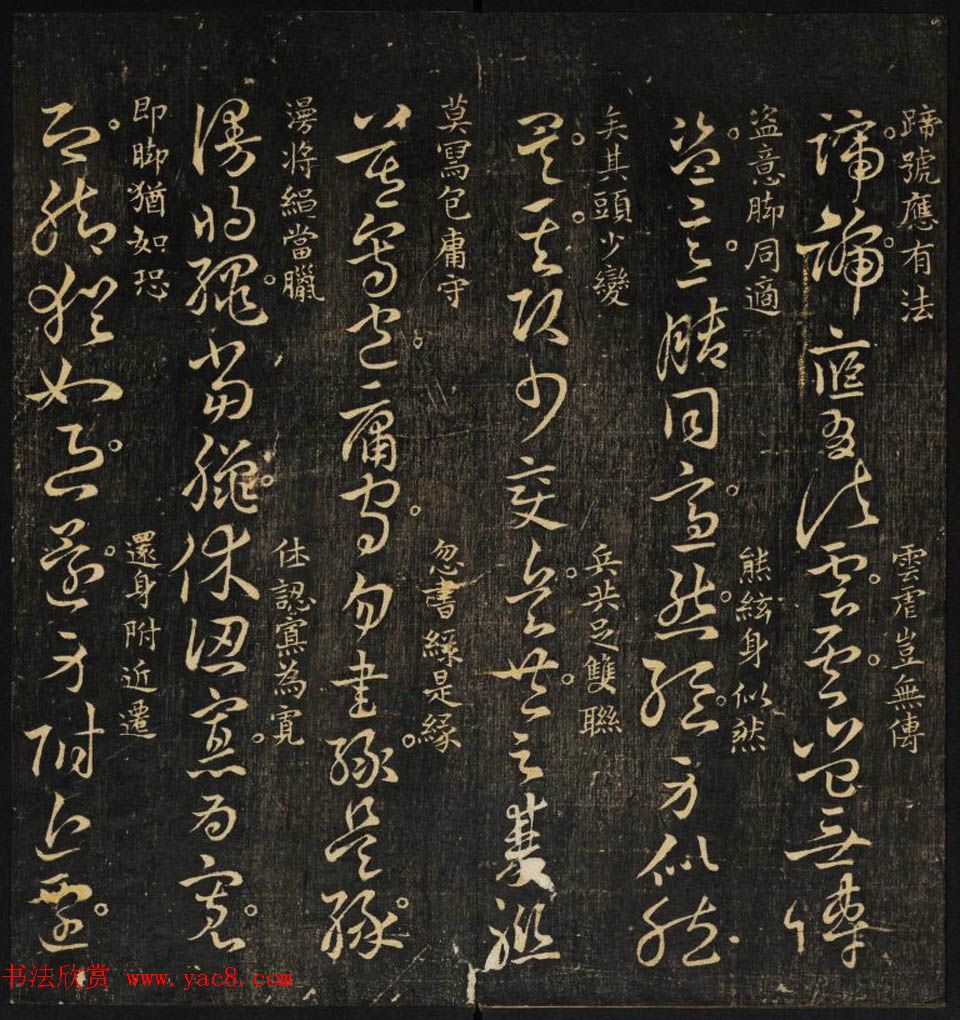 蹄號應有法
雲虐豈無傳
盜意脚同適
熊絃身似然
矣其頭少變
兵共足雙聯
莫寫包庸守
忽書綵是緣
漫將絹當臘
休認寡為寬
即脚猶如恐
還身附近遷
书法欣赏 www.yac8.com